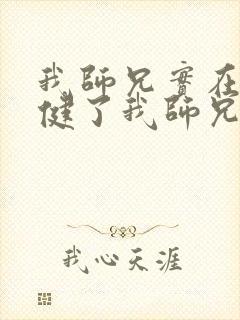 我師兄實在
健了我師兄
我心天涯